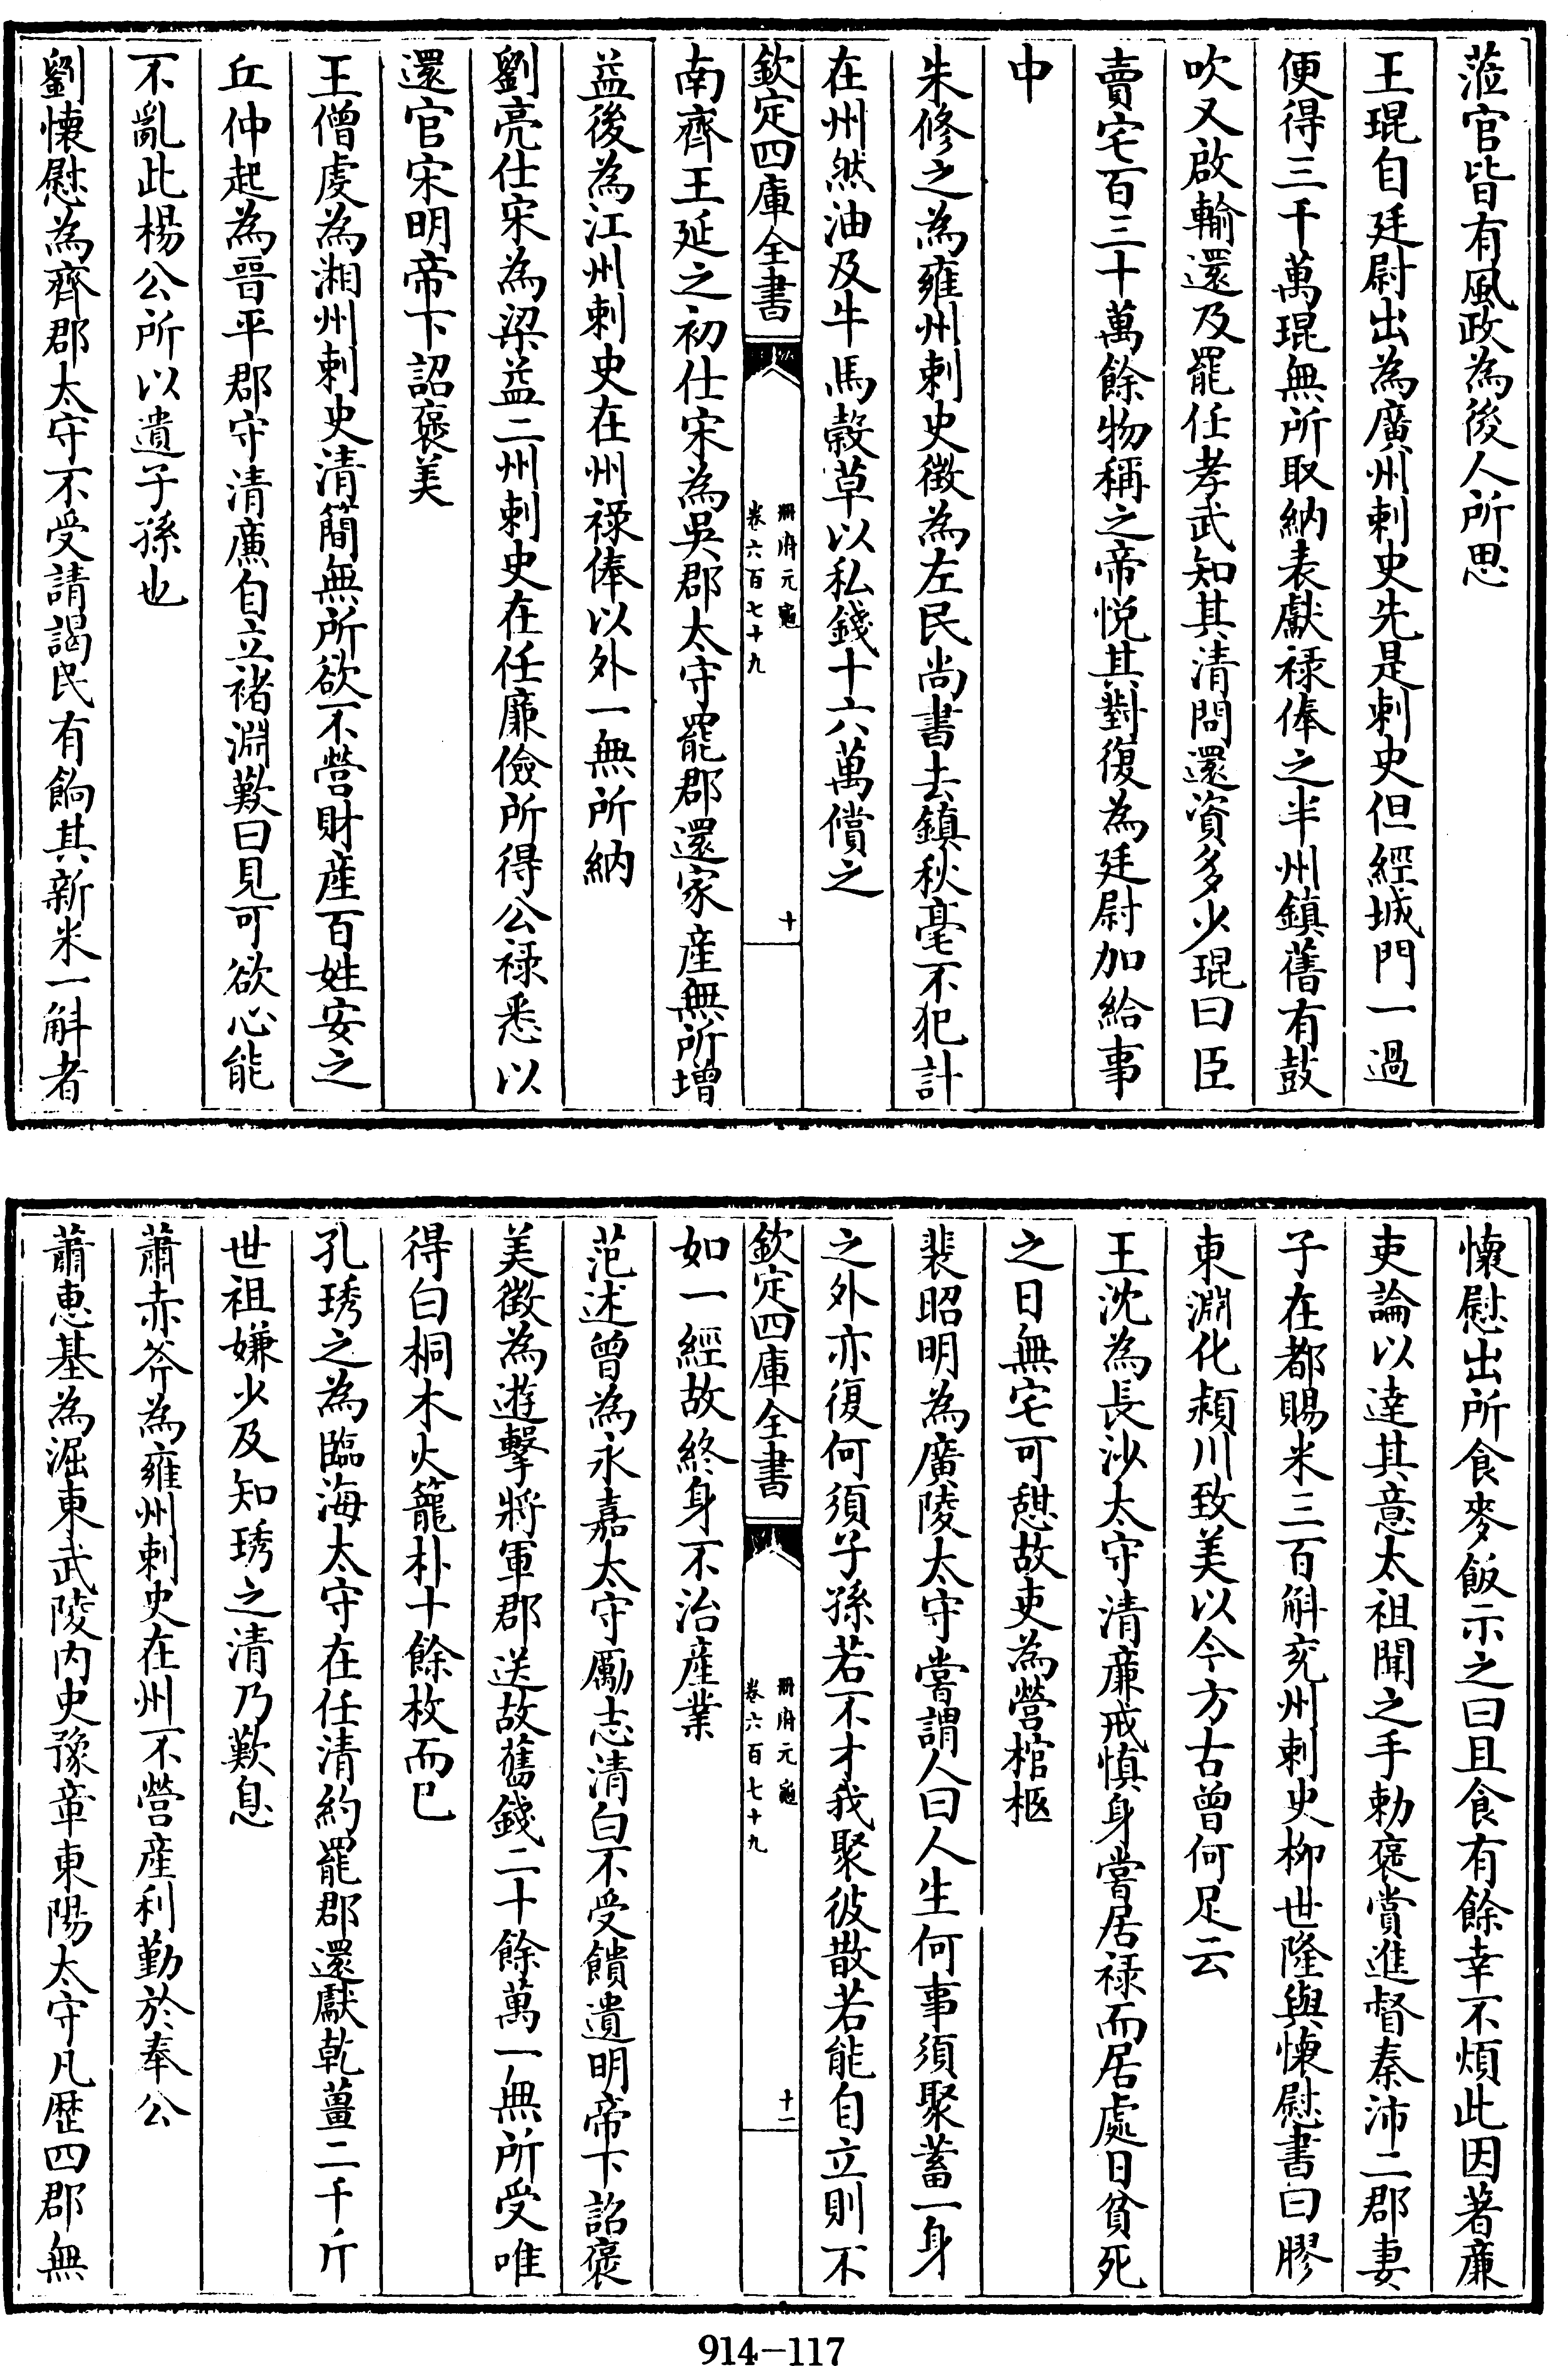 蒞官皆有風政為後人所思
王琨自廷尉出為廣州刺史先是刺史但經城門一過
便得三千萬琨無所取納表獻禄俸之半州鎮舊有鼓
吹又啟輸還及罷任孝武知其清問還資多少琨曰臣
賣宅百三十萬餘物稱之帝悦其對復為廷尉加給事
中
朱修之為雍州刺史徵為左民尚書去鎮秋毫不犯計
在州然油及牛馬穀草以私錢十六萬償之
欽定四庫全書
册府元龜
卷六百七十九
十
南齊王延之初仕宋為吳郡太守罷郡還家產無所增
益後為江州刺史在州禄俸以外一無所納
劉亮仕宋為梁益二州刺史在任廉儉所得公禄悉以
還官宋明帝下詔褒美
王僧虔為湘州刺史清簡無所欲不營財產百姓安之
丘仲起為晉平郡守清廉自立褚淵歎曰見可欲心能
不亂此楊公所以遺子孫也
劉懷慰為齊郡太守不受請謁民有餉其新米一斛者
懷慰出所食麥飯示之曰且食有餘幸不煩此因著廉
吏論以達其意太祖聞之手勅褒賞進督秦沛二郡妻
子在都賜米三百斛兖州刺史柳世隆與懷慰書曰膠
東淵化潁川致美以今方古曾何足云
王沈為長沙太守清廉戒慎身嘗居禄而居處日貧死
之日無宅可憩故吏為營棺柩
裴昭明為廣陵太守嘗謂人曰人生何事須聚蓄一身
之外亦復何須子孫若不才我聚彼散若能自立則不
欽定四庫全書
册府元龜
卷六百七十九
十一
如一經故終身不治產業
范述曾為永嘉太守勵志清白不受饋遺明帝下詔褒
美徵為遊擊將軍郡送故舊錢二十餘萬一無所受唯
得白桐木火籠朴十餘枚而已
孔琇之為臨海太守在任清約罷郡還獻乾薑二千斤
世祖嫌少及知琇之清乃歎息
蕭赤斧為雍州刺史在州不營產利勤於奉公
蕭惠基為㨿東武陵内史豫章東陽太守凡歴四郡無
914-117